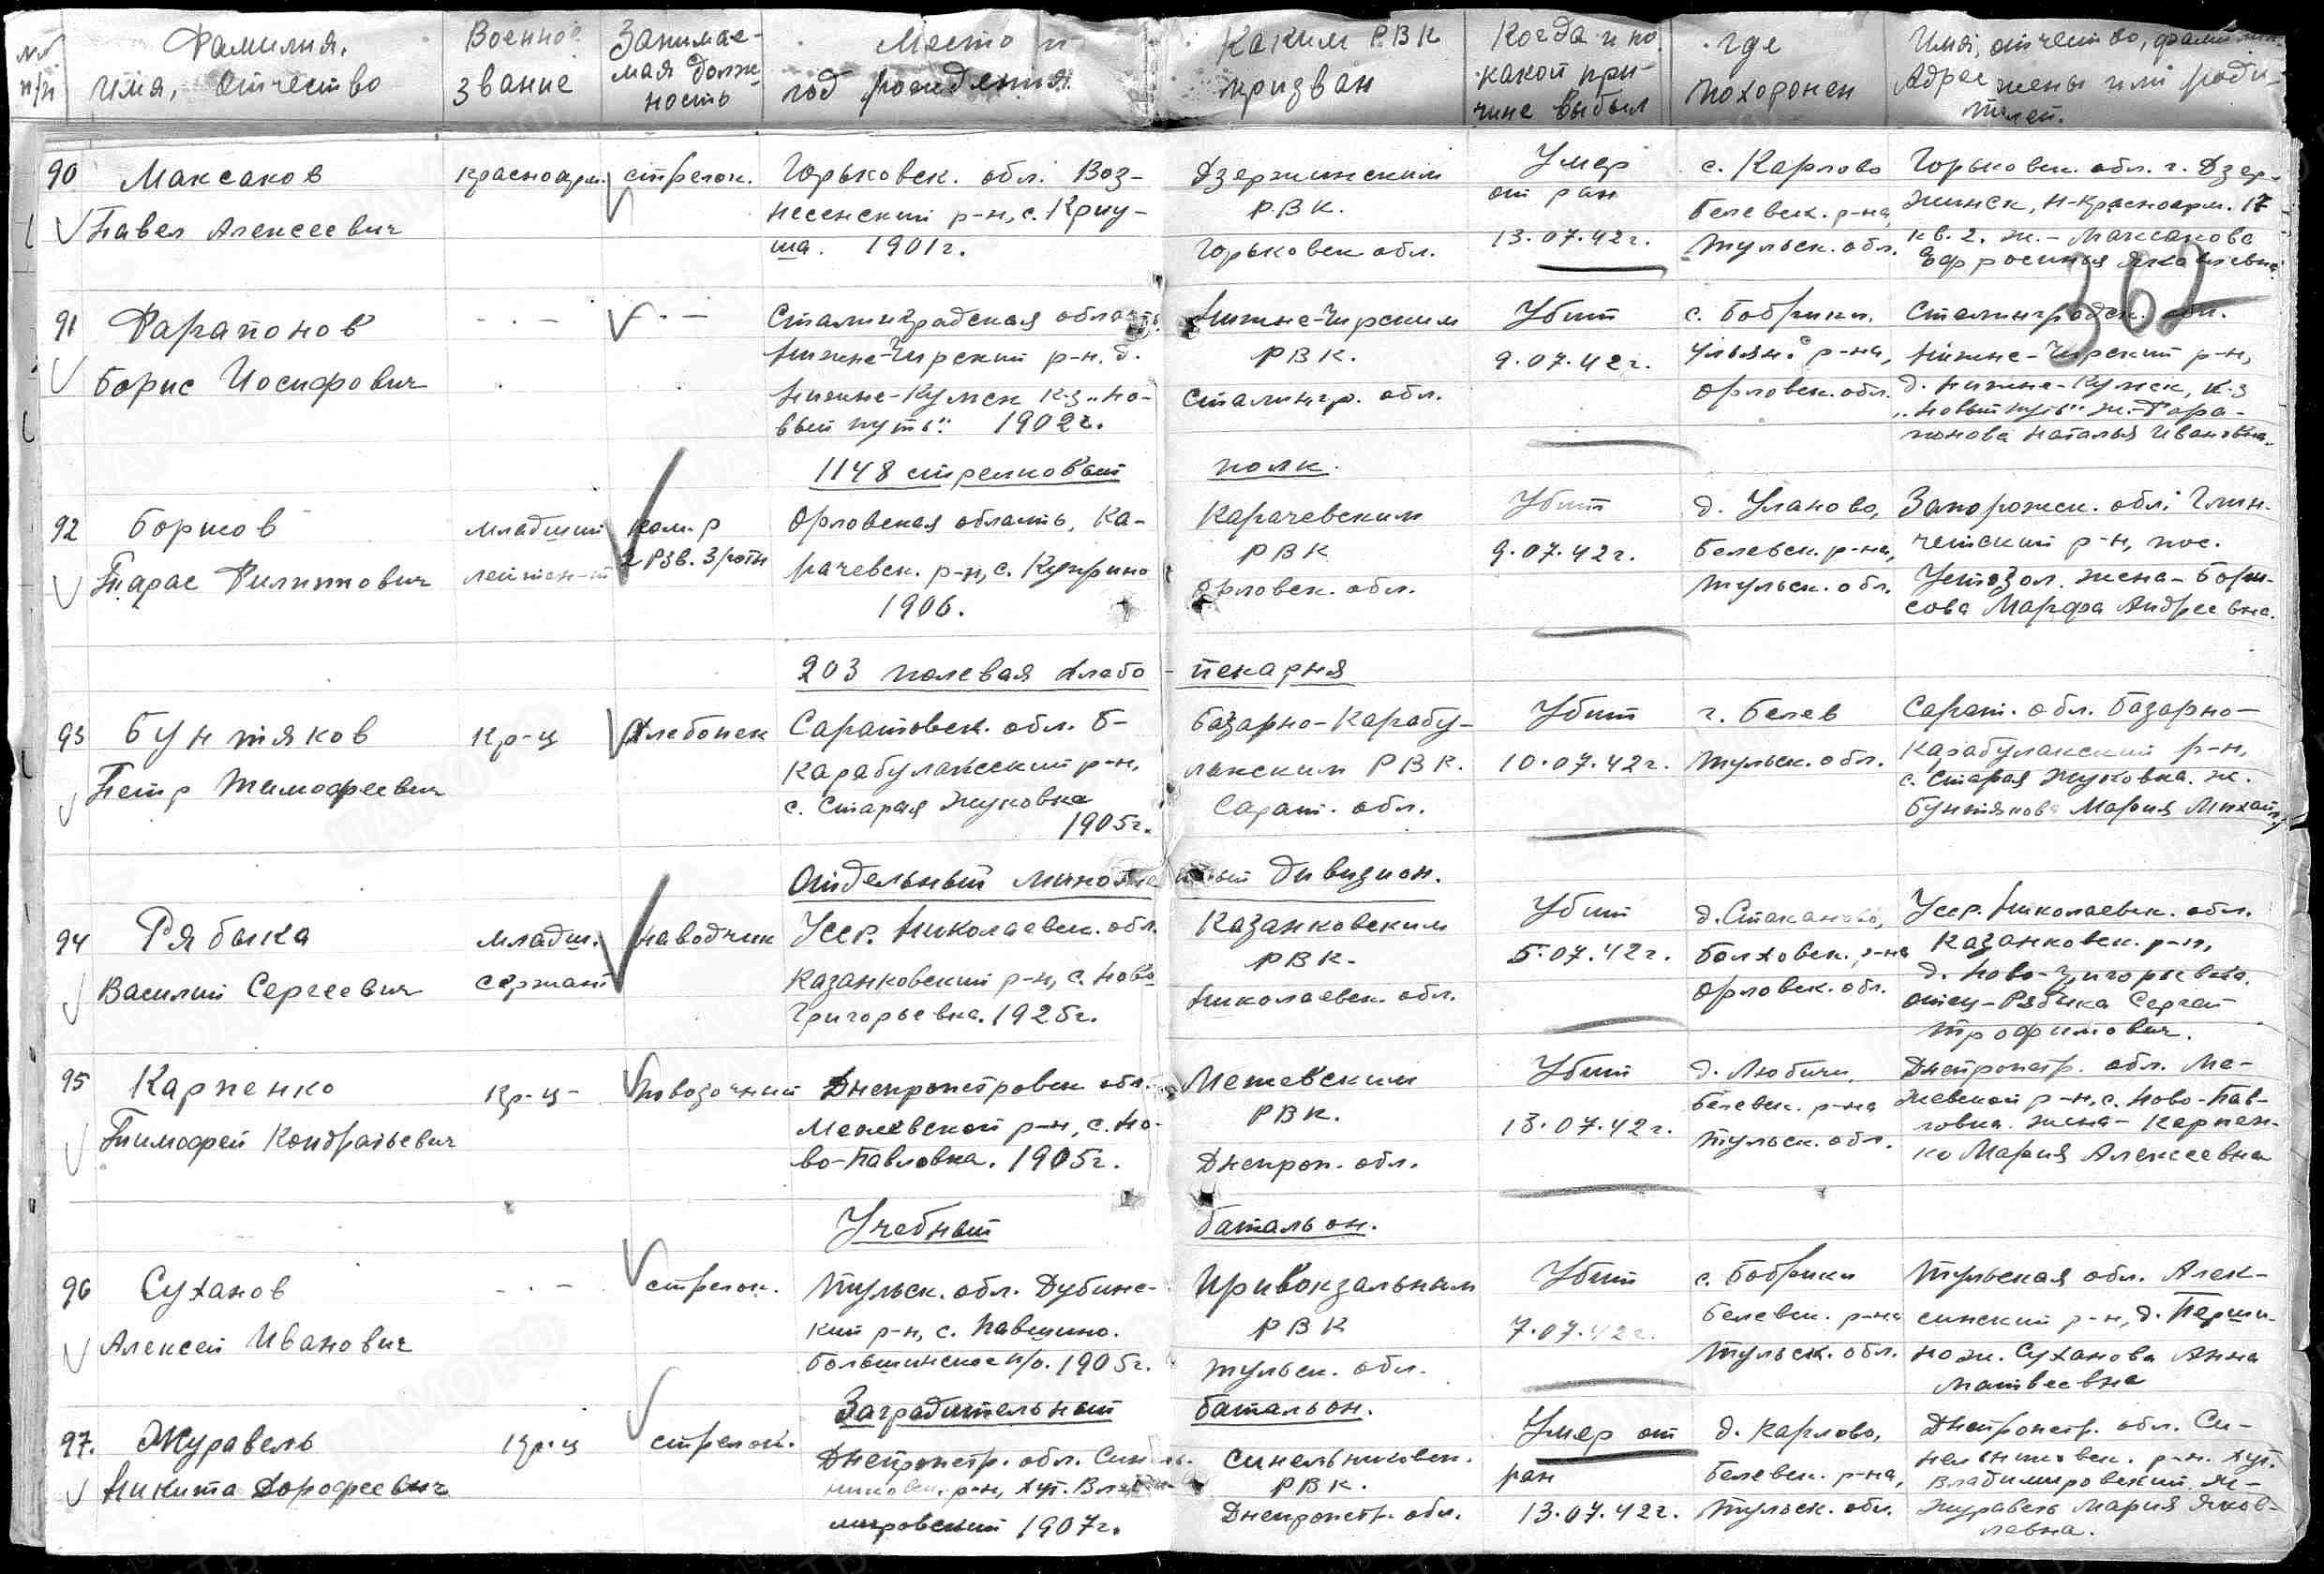 №№ п/п
Фамилия, имя, отчество
Военное звание
Занимаемая должность
Место и год рождения
Каким РВК призван
Когда и по какой причине выбыл
где похоронен
Имя, отчество, фамилия Адрес жены или родителей.
90
Максаков
Павел Алексеевич
красноарм.
стрелок.
Горьковск. обл. Воз-
несенский р-н, с. Криу-
ша. 1901г.
Дзержинским
РВК.
Горьковск обл.
Умер
от ран
13.07.42г.
с. Карлово
Белевск. р-на,
Тульск. обл.
Горьковск. обл. г. Дзер-
жинск, Н-Красноарм. 17
кв. 2. ж. - Максакова
Ефросинья Яковлевна
362
91
Фарапонов
Борис Иосифович
- . -
- . -
Сталинградская область
Нижне-Чирский р-н. д.
Нижне-Кумск к-з „Но-
вый путь". 1902г.
Нижне-Чирским
РВК.
Сталингр. обл.
Убит
9.07.42г.
с. Бобрики.
Ульян. р-на,
Орловск. обл.
Сталинградск. обл.
Нижне-Чирский р-н,
д. Нижне-Кумск, к-з
„Новый путь" ж.-Фара-
понова Наталья Ивановна.
1148 стрелковый полк.
92
Борисов
Тарас Филиппович
младший
лейтен-т
ком-р
2 взв. 3 роты
Орловская область, Ка-
рачевск. р-н, с. Куприно
1906.
Карачевским
РВК
Орловск. обл.
Убит
9.07.42г.
д. Уланово,
Белевск. р-на,
Тульск. обл.
Запорожск. обл.
р-н, пос.
жена - Бори-
сова Марфа Андреевна.
203 полевая хлебо-пекарня
93
Бунтяков
Петр Тимофеевич
кр-ц
хлебопек
Саратовск. обл. Б-
Карабулакский р-н,
с. Старая Жуковка
1905г.
Базарно-Карабу-
лакским РВК.
Сарат. обл.
Убит
10.07.42г.
г. Белев
Тульск. обл.
Сарат. обл. Базарно-
Карабулакский р-н,
с. Старая Жуковка. ж.
Бунтякова Мария Михайл.
Отдельный минометный дивизион.
94
Рябыка
Василий Сергеевич
младш.
сержант
наводчик
Усср. Николаевск. обл.
Казанковский р-н, с. Ново
Григорьевка. 1925г.
Казанковским
РВК.
Николаевск. обл.
Убит
5.07.42г.
д. Стаканово,
Болховск. р-на
Орловск. обл.
Усср. Николаевск. обл.
Казанковск. р-н,
д. Ново-Григорьевка.
отец-Рябыка Сергей
Трофимович.
95
Карпенко
Тимофей Кондратьевич
кр-ц-
повозочный
Днепропетровск обл.
Межевской р-н, с. Но-
во-Павловка. 1905г.
Межевским
РВК.
Днепроп. обл.
Убит
13.07.42г.
д. Любичи,
Белевск. р-на
Тульск. обл.
Днепропетр. обл. Ме-
жевской р-н, с. Ново-Пав-
ловка. жена - Карпен-
ко Мария Алексеевна
Учебный батальон.
96
Суханов
Алексей Иванович
- . -
стрелок.
Тульск. обл. Дубинс-
кий р-н, с. Павшино.
п/о. 1905г.
Привокзальным
РВК
Тульск. обл.
Убит
7.07.42г.
с. Бобрики
Белевск. р-на
Тульск. обл.
Тульская обл. Алек-
синский р-н, д. Перши-
но ж. Суханова Анна
Матвеевна
Заградительный батальон.
97.
Журавель
Никита Дорофеевич
кр-ц
стрелок.
Днепропетр. обл. Синель-
никовск. р-н, хут. Влади-
мировский 1907г.
Синельниковск.
РВК.
Днепропетр. обл.
Умер от
ран
13.07.42г.
д. Карлово,
Белевск. р-на,
Тульск. обл.
Днепропетр. обл. Си-
нельниковск. р-н. хут.
Владимировский. ж-
Журавель Мария Яков-
левна.